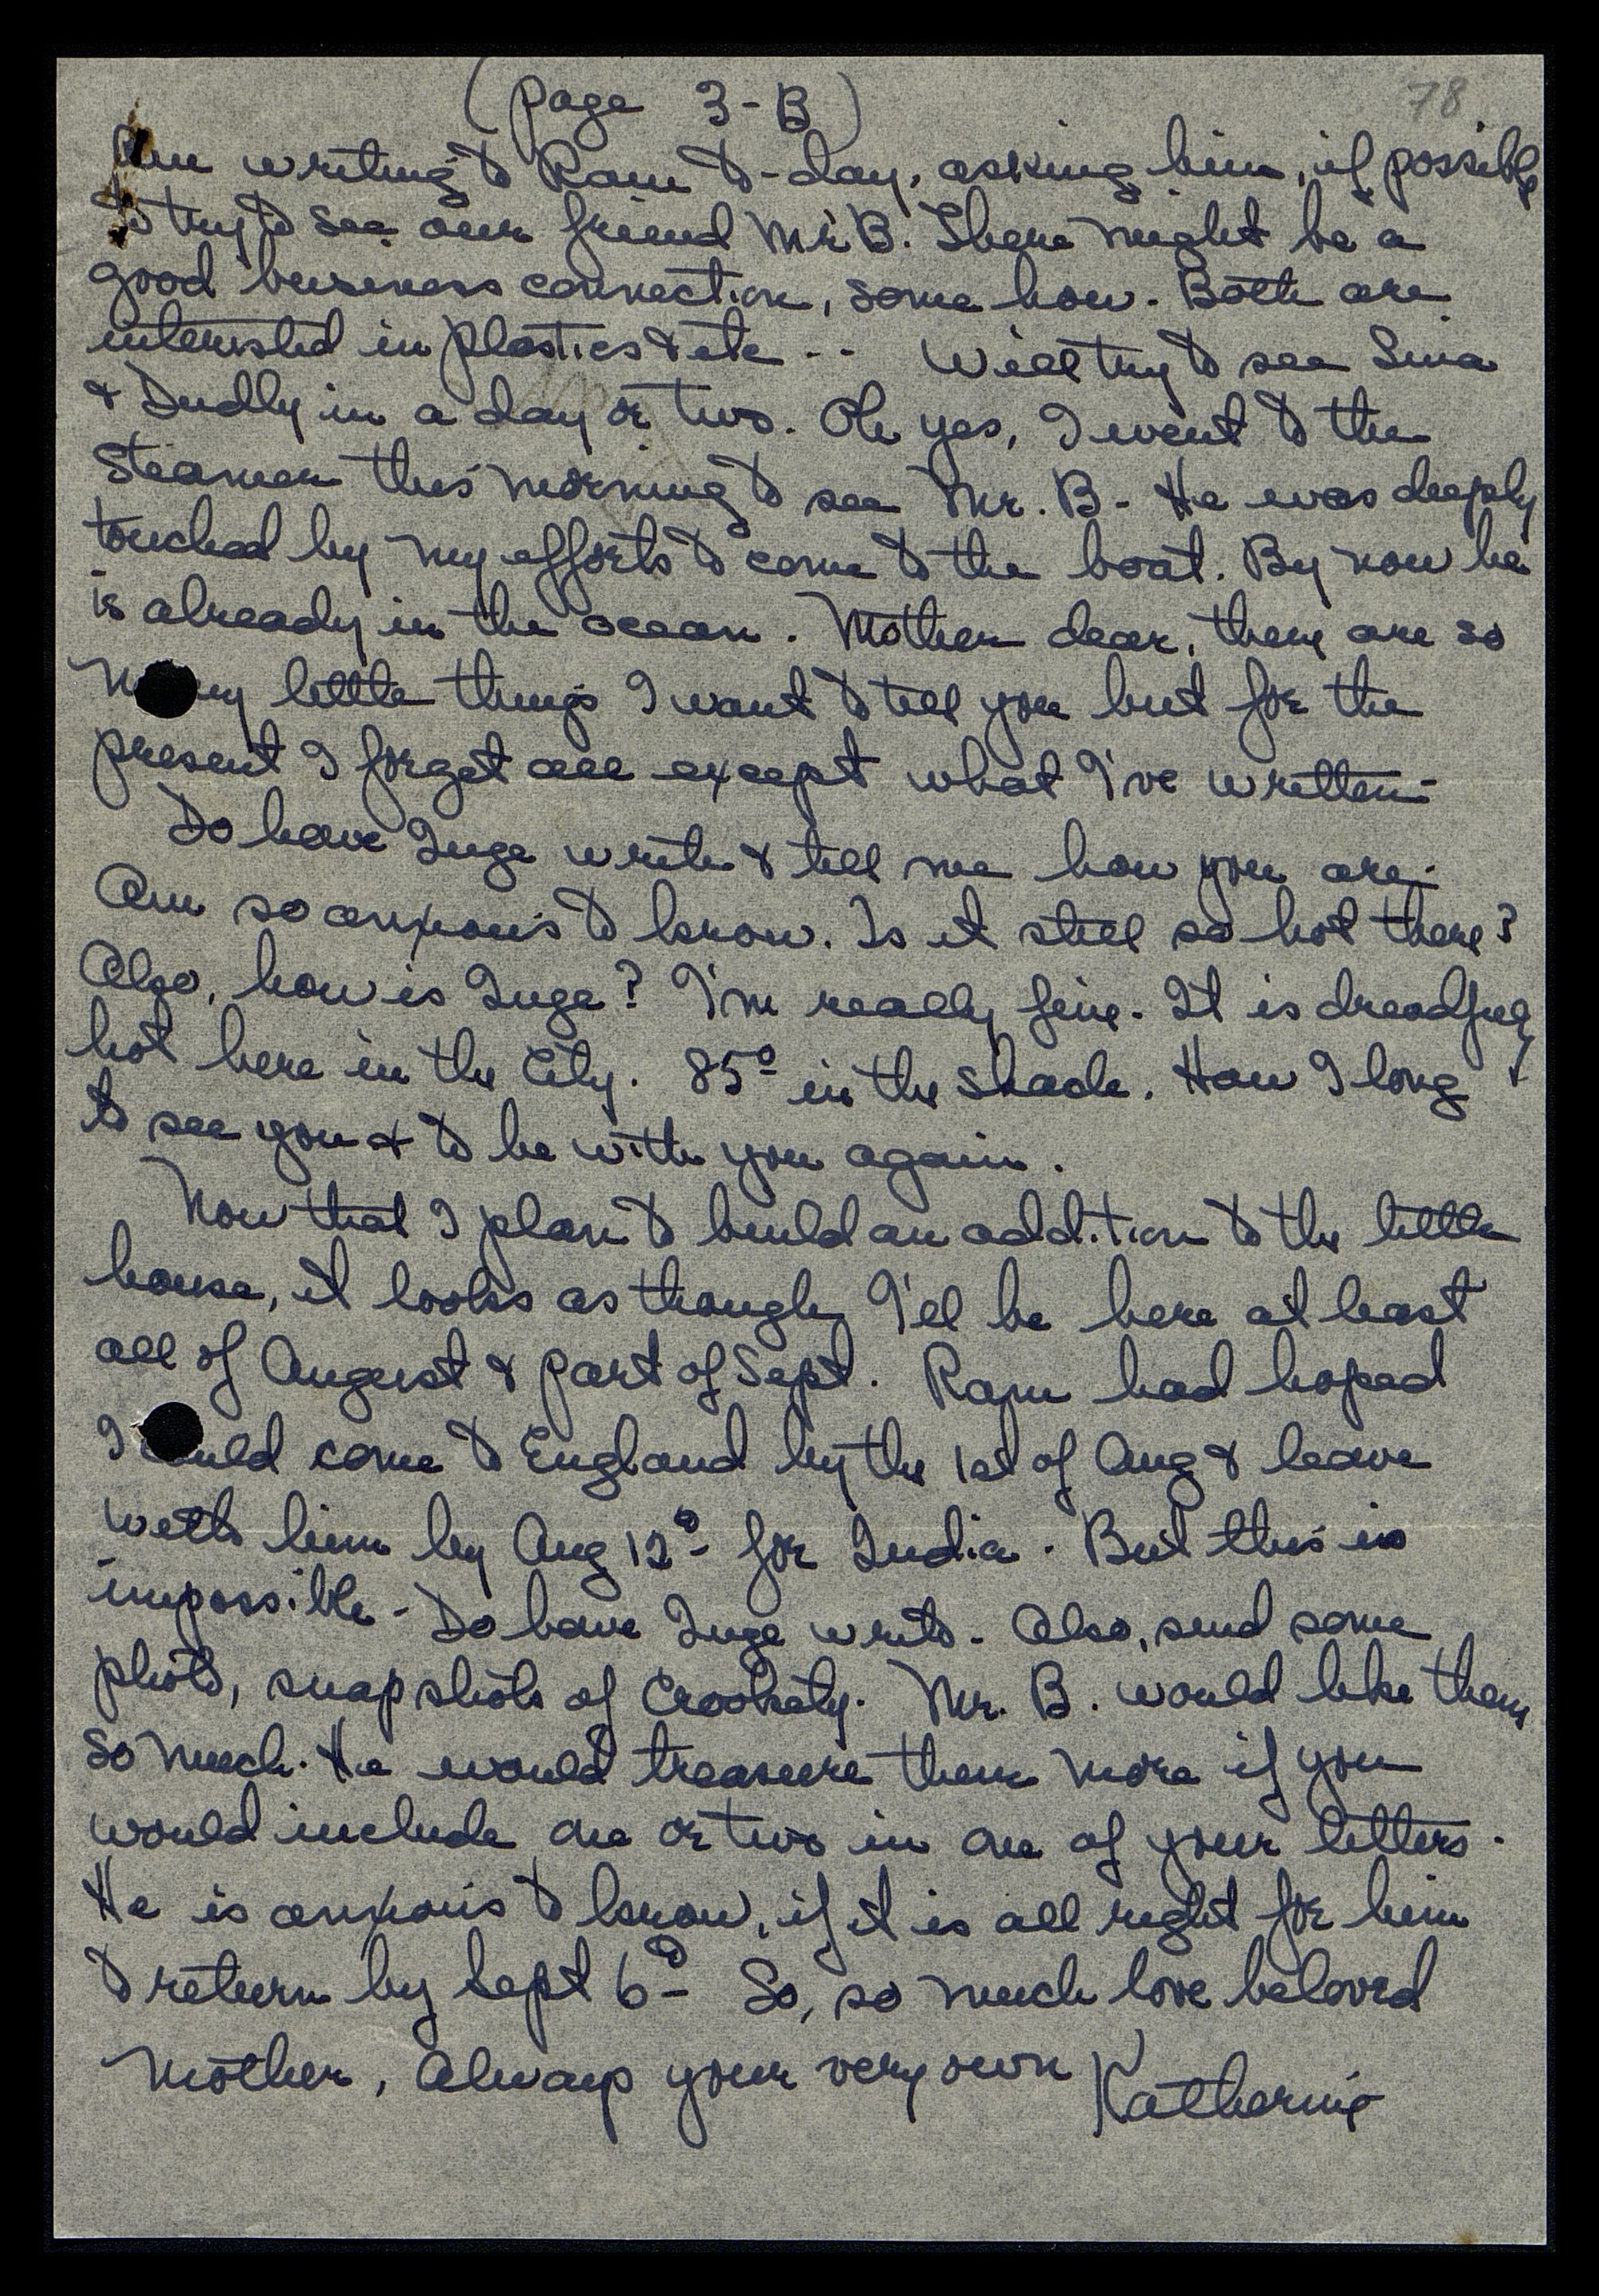 (page 3-B)
78
Am writing to Ram to-day, asking him, if possible
to try to see our friend Mr B. There might be a
good business connection, some how. Both are
interested in plastics & etc -- Will try to see Sina
& Dudly in a day or two. Oh yes, I went to the
Steamer this morning to see Mr. B- He was deeply
touched by my efforts to come to the boat. By now he
is already in the ocean. Mother dear, there are so
many little things I want to tell you but for the
present I forget all except what I've written-
Do have Inge write & tell me how you are.
Am so anxious to know. Is it still so hot there?
Also, how is Inge? I'm really fine. It is dreadfully
hot here in the City. 85° in the shade. How I long
to see you & to be with you again.
Now that I plan to build an addition to the little
house, it looks as though I'll be here at least
all of August & part of Sept. Ram had hoped
I could come to England by the 1st of Aug & leave
with him by Aug 12th for India. But this is
impossible- Do have Inge write. Also, send some
photo, snap shots of Crookety. Mr. B. would like them
so much. He would treasure them more if you
would include one or two in one of your letters.
He is anxious to know, if it is all right for him
to return by Sept 6th So, so much love beloved
Mother, Always your very own Katherine